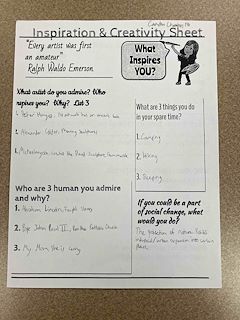 Inspiration & Creativity Sheet
"Every artist was first
an amateur"
Ralph Waldo Emerson
What
Inspires
YOU?
What artist do you admire? Who
inspires you? Why? List 3
1. Peter
2. Alexander Calder, Moving Sculptures
3. Michelangelo, David
What are 3 things you do
in your spare time?
1. Camping
2. Hiking
3. Sleeping
Who are 3 human you admire
and why?
1. Abraham Lincoln,
2. Pope John Paul II, Catholic Church
3. My Mom, She is
If you could be a part
of social change, what
would you do?
The protection of natural
urban expansion into certain